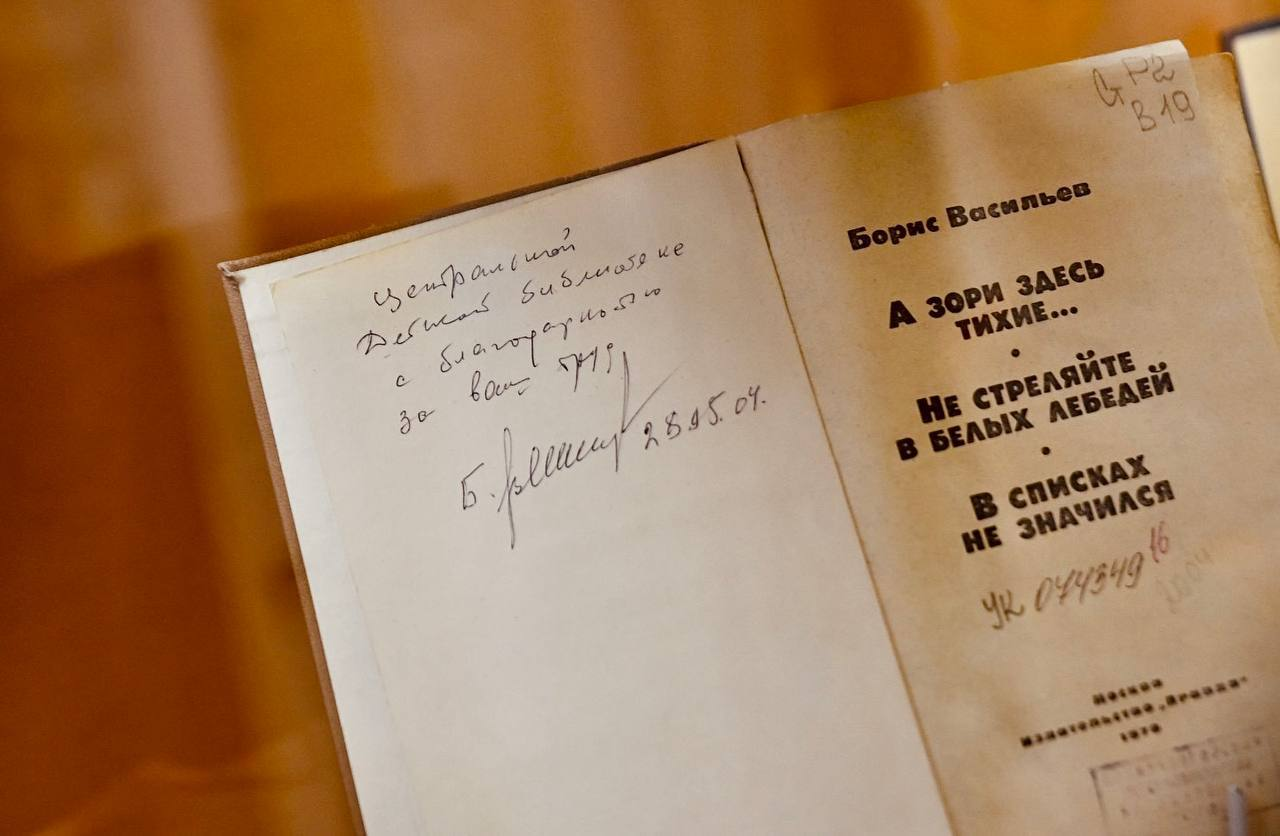 Центральной
Детской библиотеке
с благодарностью
за ваш труд
Б.
04.
Борис Васильев
А ЗОРИ ЗДЕСЬ
ТИХИЕ...
•
НЕ СТРЕЛЯЙТЕ
В БЕЛЫХ ЛЕБЕДЕЙ
•
В СПИСКАХ
НЕ ЗНАЧИЛСЯ
УК 074349 16
Москва
Издательство „Правда“